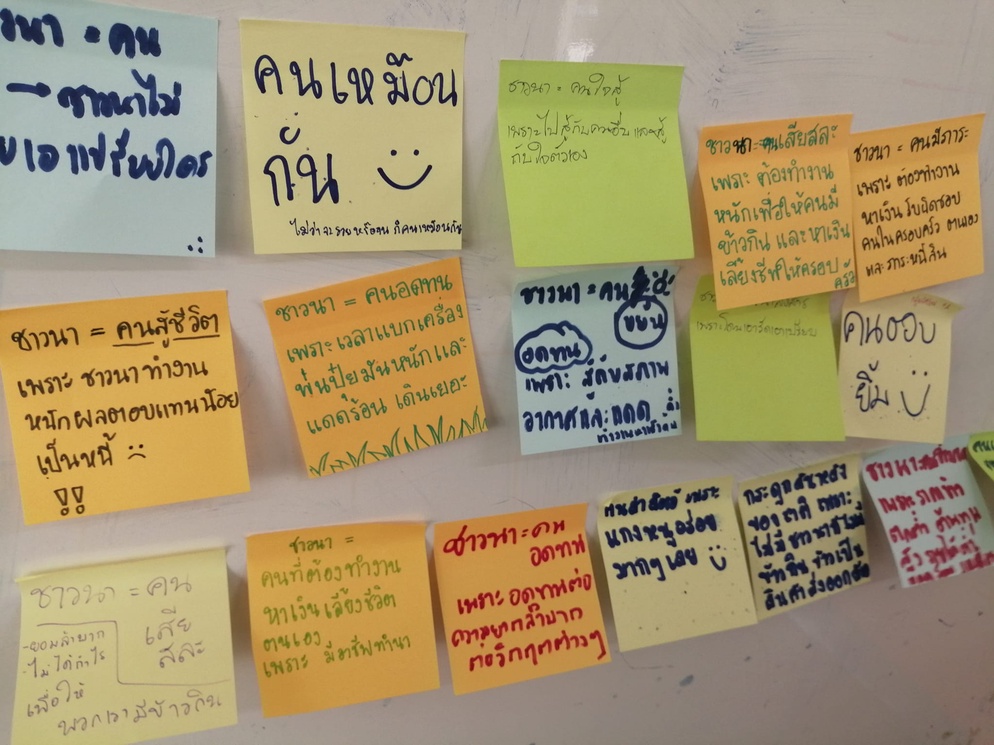 วนา = คน
→ ชาวนาไม่
เอาเปรียบใคร
คนเหมือน
กัน
ไม่ว่าจะรวยหรือจน ก็คนเหมือนกัน
ชาวนา = คนใจสู้
เพราะไปสู้กับคนอื่น และสู้
กับใจตัวเอง
ชาวนา = คนเสียสละ
เพราะ ต้องทำงาน
หนักเพื่อให้คนมี
ข้าวกิน และหาเงิน
เลี้ยงชีพให้ครอบครัว
ชาวนา = คนมีภาระ
เพราะ ต้องทำงาน
หาเงิน รับผิดชอบ
คนในครอบครัว ตนเอง
และภาระหนี้สิน
ชาวนา = คนสู้ชีวิต
เพราะ ชาวนาทำงาน
หนักผลตอบแทนน้อย
เป็นหนี้
ชาวนา = คนอดทน
เพราะเวลาแบกเครื่อง
พ่นปุ๋ยมันหนักและ
แดดร้อน เดินเยอะ
ชาวนา = คน
ขยัน
อดทน
เพราะ สู้กับสภาพ
อากาศและแดด
เพราะโดนเอารัดเอาเปรียบ
คนชอบ
ยิ้ม
ชาวนา = คน
เสีย
สละ
-ยอมลำบาก
ไม่ได้กำไร
เพื่อให้
พวกเรามีข้าวกิน
ชาวนา =
คนที่ต้องทำงาน
หาเงินเลี้ยงชีวิต
ตนเอง
เพราะ มีอาชีพทำนา
ชาวนา = คน
อดทน
เพราะอดทนต่อ
ความยากลำบาก
ต่อวิกฤตต่างๆ
เพราะ
แกงหนูอร่อย
มากๆ เลย
กระดูกสันหลัง
ของชาติ เพราะ
ไม่มีชาวนาก็ไม่มี
ข้าวกิน ข้าวเป็น
สินค้าส่งออก
ชาวนา
เพราะ
ตกต่ำ ต้นทุน